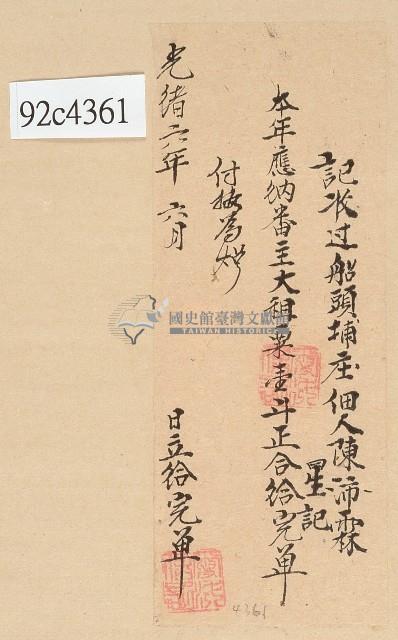 92c4361
記收过船頭埔庄佃人陳沛霖
星記
本年應納番主大租粟壹斗正合給完單
付挍為炤
光緒六年 六月
日立給完單
國史館臺灣文獻館
TAIWAN HISTORICA
4361